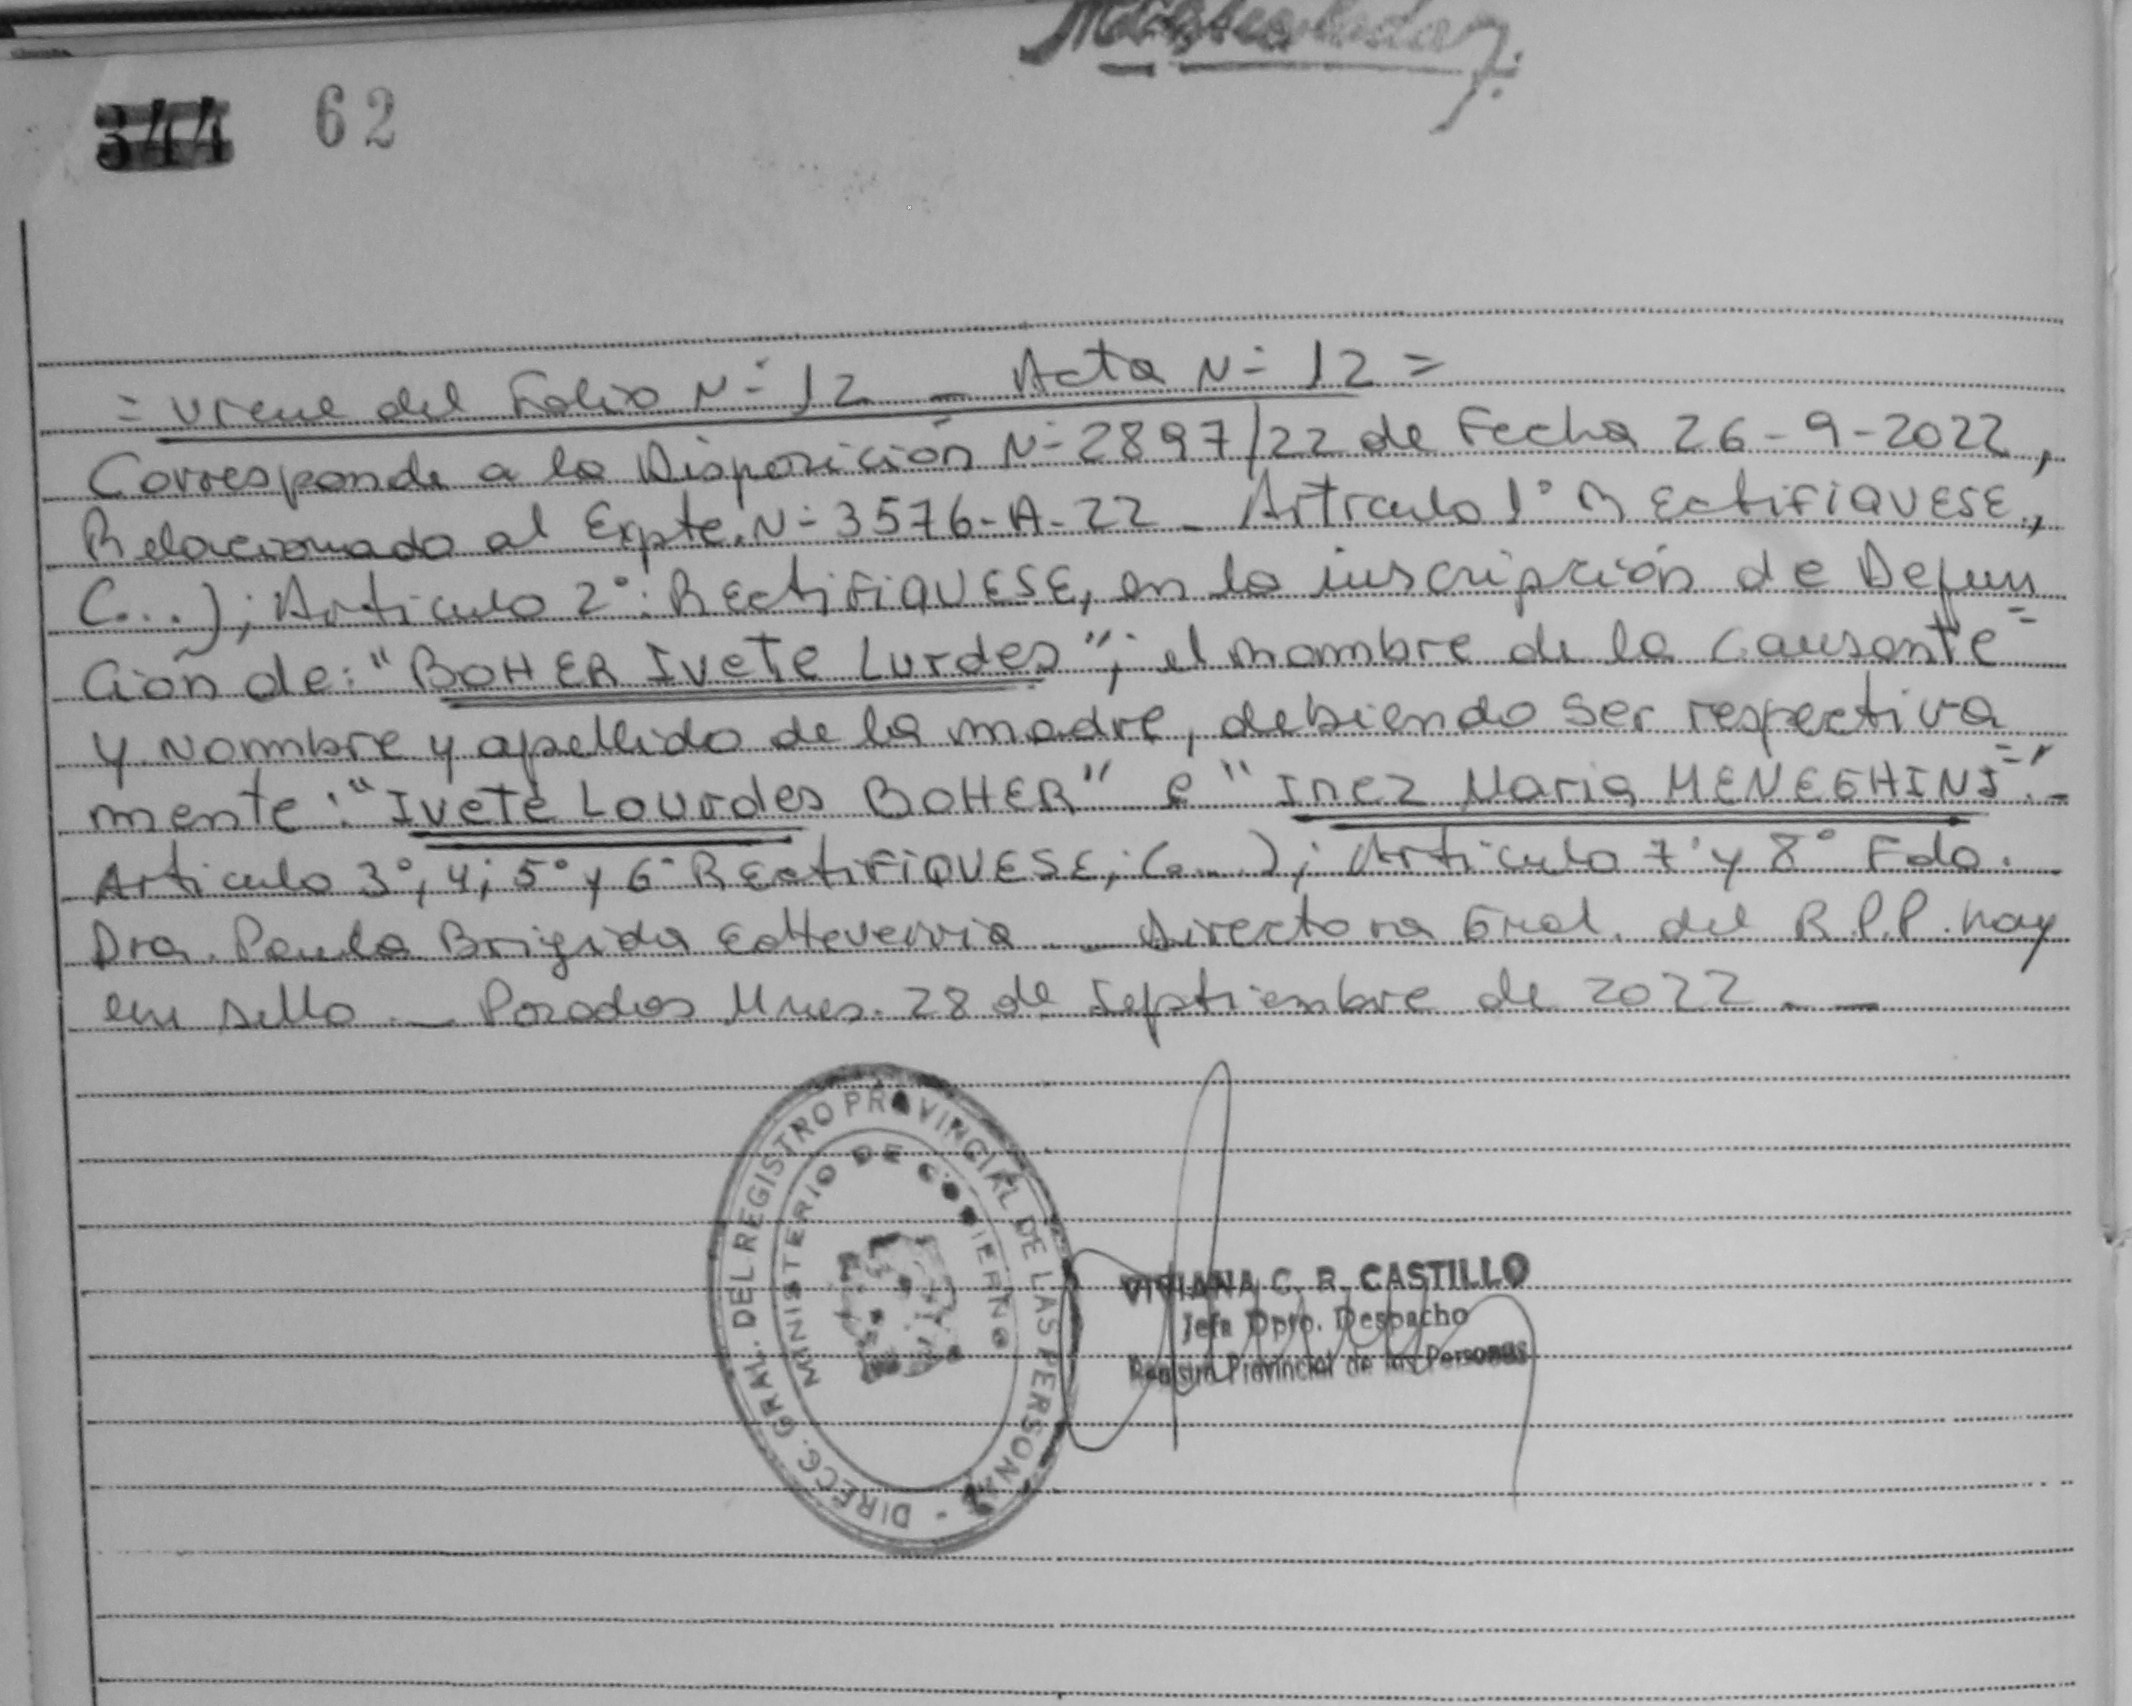 344 62
= Viene del Folio N- 12 - Acta N- 12 =
Corresponde a la Disposición N- 2897/22 de Fecha 26-9-2022,
Relacionado al Expte. N- 3576-A-22 - Articulo 1° RectiFiQUESE,
(...); Articulo 2°: RectiFiQUESE, en la inscripción de Defun
ción de: "BOHER Ivete Lurdes"; el nombre de la causante
y nombre y apellido de la madre, debiendo ser respectiva=
mente: "Ivete Lourdes BOHER" e "Inez Maria MENEGHINI".-
Articulo 3°, 4; 5° y 6° RectiFiQUESE; (...); Articulo 7° y 8° Fdo.
Dra. Paula Brigida Echeverria - Directora Gral. del R.P.P. hay
un sello. - Posadas Mnes. 28 de Septiembre de 2022. -
DIRECC. GRAL. DEL REGISTRO PROVINCIAL DE LAS PERSONAS -
MINISTERIO DE GOBIERNO
VIVIANA C. R. CASTILLO
Jefa Dpto. Despacho
Registro Provincial de las Personas